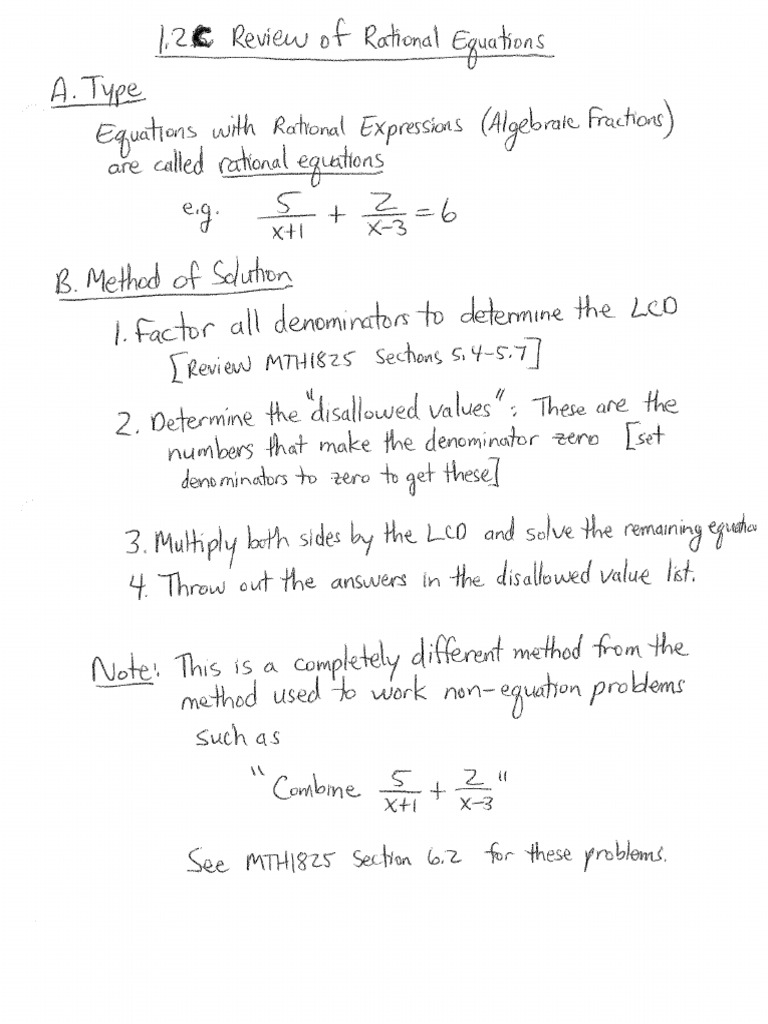 1.2C Review of Rational Equations
A. Type
Equations with Rational Expressions (Algebraic Fractions)
are called rational equations
e.g. 5/(x+1) + 2/(x-3) = 6
B. Method of Solution
1. Factor all denominators to determine the LCD
[Review MTH1825 Sections 5.4-5.7]
2. Determine the "disallowed values": These are the
numbers that make the denominator zero [set
denominators to zero to get these]
3. Multiply both sides by the LCD and solve the remaining equation
4. Throw out the answers in the disallowed value list.
Note: This is a completely different method from the
method used to work non-equation problems
such as
"Combine 5/(x+1) + 2/(x-3)"
See MTH1825 Section 6.2 for these problems.